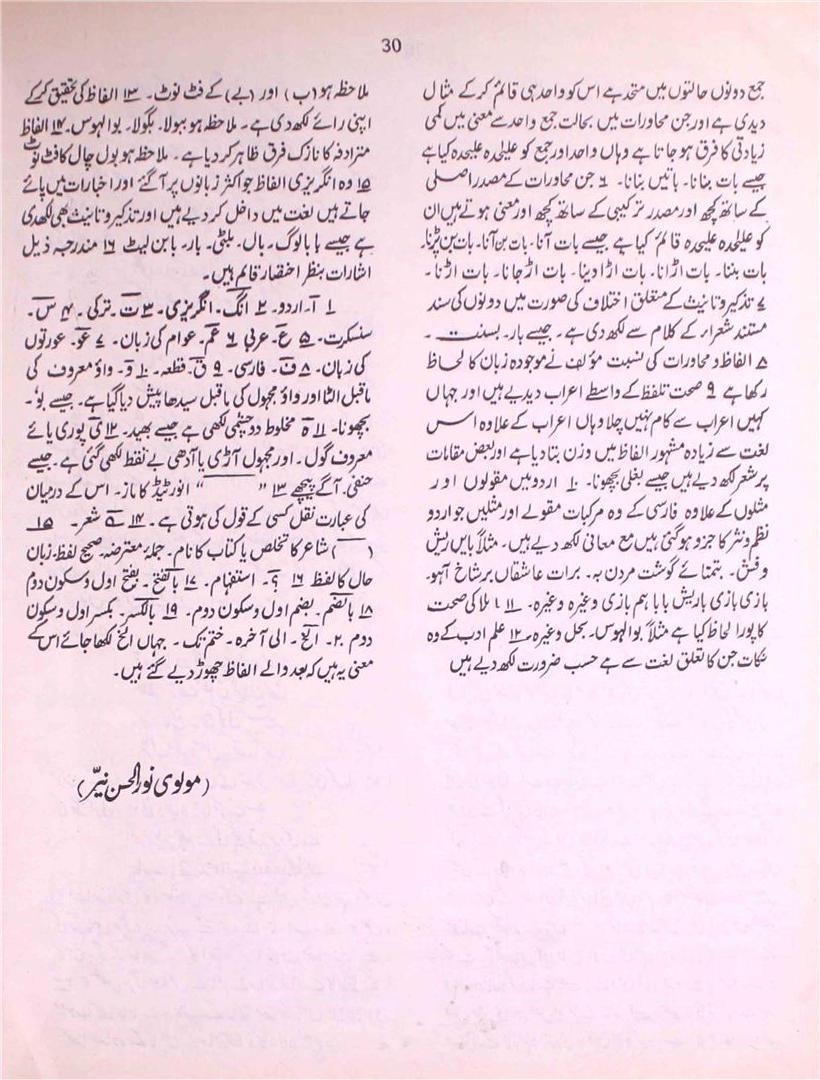 30
جمع دونوں حالتوں میں متحد ہے اس کو واحد ہی قائم کرکے مثال
دیدی ہے اور جن محاورات میں بحالت جمع واحد سے معنی میں کمی
زیادتی کا فرق ہو جاتا ہے وہاں واحد اور جمع کو علیٰحدہ علیٰحدہ کیا ہے
جیسے بات بنانا۔ باتیں بنانا۔ ۶ جن محاورات کے مصدر اصلی
کے ساتھ کچھ اور مصدر ترکیبی کے ساتھ کچھ اور معنی ہوتے ہیں ان
کو علیٰحدہ علیٰحدہ قائم کیا ہے جیسے بات آنا۔ بات بن آنا۔ بات بن پڑنا۔
بات بننا۔ بات اڑانا۔ بات اڑا دینا۔ بات اڑ جانا۔ بات اڑنا۔
۷ تذکیر و تانیث کے متعلق اختلاف کی صورت میں دونوں کی سند
مستند شعراء کے کلام سے لکھ دی ہے۔ جیسے بار۔ بسنت۔
۸ الفاظ و محاورات کی نسبت مؤلف نے موجودہ زبان کا لحاظ
رکھا ہے ۹ صحت تلفظ کے واسطے اعراب دیدیے ہیں اور جہاں
کہیں اعراب سے کام نہیں چلا وہاں اعراب کے علاوہ اس
لغت سے زیادہ مشہور الفاظ میں وزن بتا دیا ہے اور بعض مقامات
پر شعر لکھ دیے ہیں جیسے بغلی بچھونا۔ ۱۰ اردو میں مقولوں اور
مثلوں کے علاوہ فارسی کے وہ مرکبات مقولے اور مثلیں جو اردو
نظم و نثر کا جزو ہو گئی ہیں مع معانی لکھ دیے ہیں۔ مثلاً بایں ریش
و فش۔ بتمنائے گوشت مردن بہ۔ برات عاشقاں بر شاخ آہو۔
بازی بازی باریش بابا ہم بازی وغیرہ وغیرہ۔ ۱۱ املا کی صحت
کا پورا لحاظ کیا ہے مثلاً بوالہوس۔ بحل وغیرہ۔ ۱۲ علم ادب کے وہ
نکات جن کا تعلق لغت سے ہے حسب ضرورت لکھ دیے ہیں
ملاحظہ ہو (ب) اور (بے) کے فٹ نوٹ۔ ۱۳ الفاظ کی تحقیق کرکے
اپنی رائے لکھ دی ہے۔ ملاحظہ ہو ببولا۔ بگولا۔ بوالہوس۔ ۱۴ الفاظ
مترادفہ کا نازک فرق ظاہر کر دیا ہے۔ ملاحظہ ہو بول چال کا فٹ نوٹ
۱۵ وہ انگریزی الفاظ جو اکثر زبانوں پر آگئے اور اخبارات میں پائے
جاتے ہیں لغت میں داخل کر دیے ہیں اور تذکیر و تانیث بھی لکھدی
ہے جیسے بابا لوگ۔ بال۔ بلٹی۔ بار۔ بابن لیٹ ۱۶ مندرجہ ذیل
اشارات بنظر اختصار قائم ہیں۔
۱ آ۔ اردو۔ ۲ انگ۔ انگریزی۔ ۳ ت۔ ترکی۔ ۴ س۔
سنسکرت۔ ۵ ع۔ عربی ۶ عم۔ عوام کی زبان۔ ۷ عو۔ عورتوں
کی زبان۔ ۸ ف۔ فارسی۔ ۹ ق۔ قطعہ۔ ۱۰ و۔ واؤ معروف کی
ماقبل الٹا اور واؤ مجہول کی ماقبل سیدھا پیش دیا گیا ہے۔ جیسے بو۔
بچھونا۔ ۱۱ ہ مخلوط دو چشمی لکھی ہے جیسے بھید۔ ۱۲ ی پوری یائے
معروف گول۔ اور مجہول آڑی یا آدھی بے نقط لکھی گئی ہے۔ جیسے
حنفی۔ آگے پیچھے ۱۳ "———" انورٹیڈ کاماز۔ اس کے درمیان
کی عبارت نقل کسی کے قول کی ہوتی ہے۔ ۱۴ ؎ شعر۔ ۱۵
(——) شاعر کا تخلص یا کتاب کا نام۔ جملۂ معترضہ۔ صحیح لفظ۔ زبان
حال کا لفظ ۱۶ ؟۔ استفہام۔ ۱۷ بالفتح۔ بفتح اول و سکون دوم
۱۸ بالضم۔ بضم اول و سکون دوم۔ ۱۹ بالکسر۔ بکسر اول و سکون
دوم ۲۰۔ الخ۔ الی آخرہ۔ ختم تک۔ جہاں الخ لکھا جائے اس کے
معنی یہ ہیں کہ بعد والے الفاظ چھوڑ دیے گئے ہیں۔
(مولوی نور الحسن نیّر)